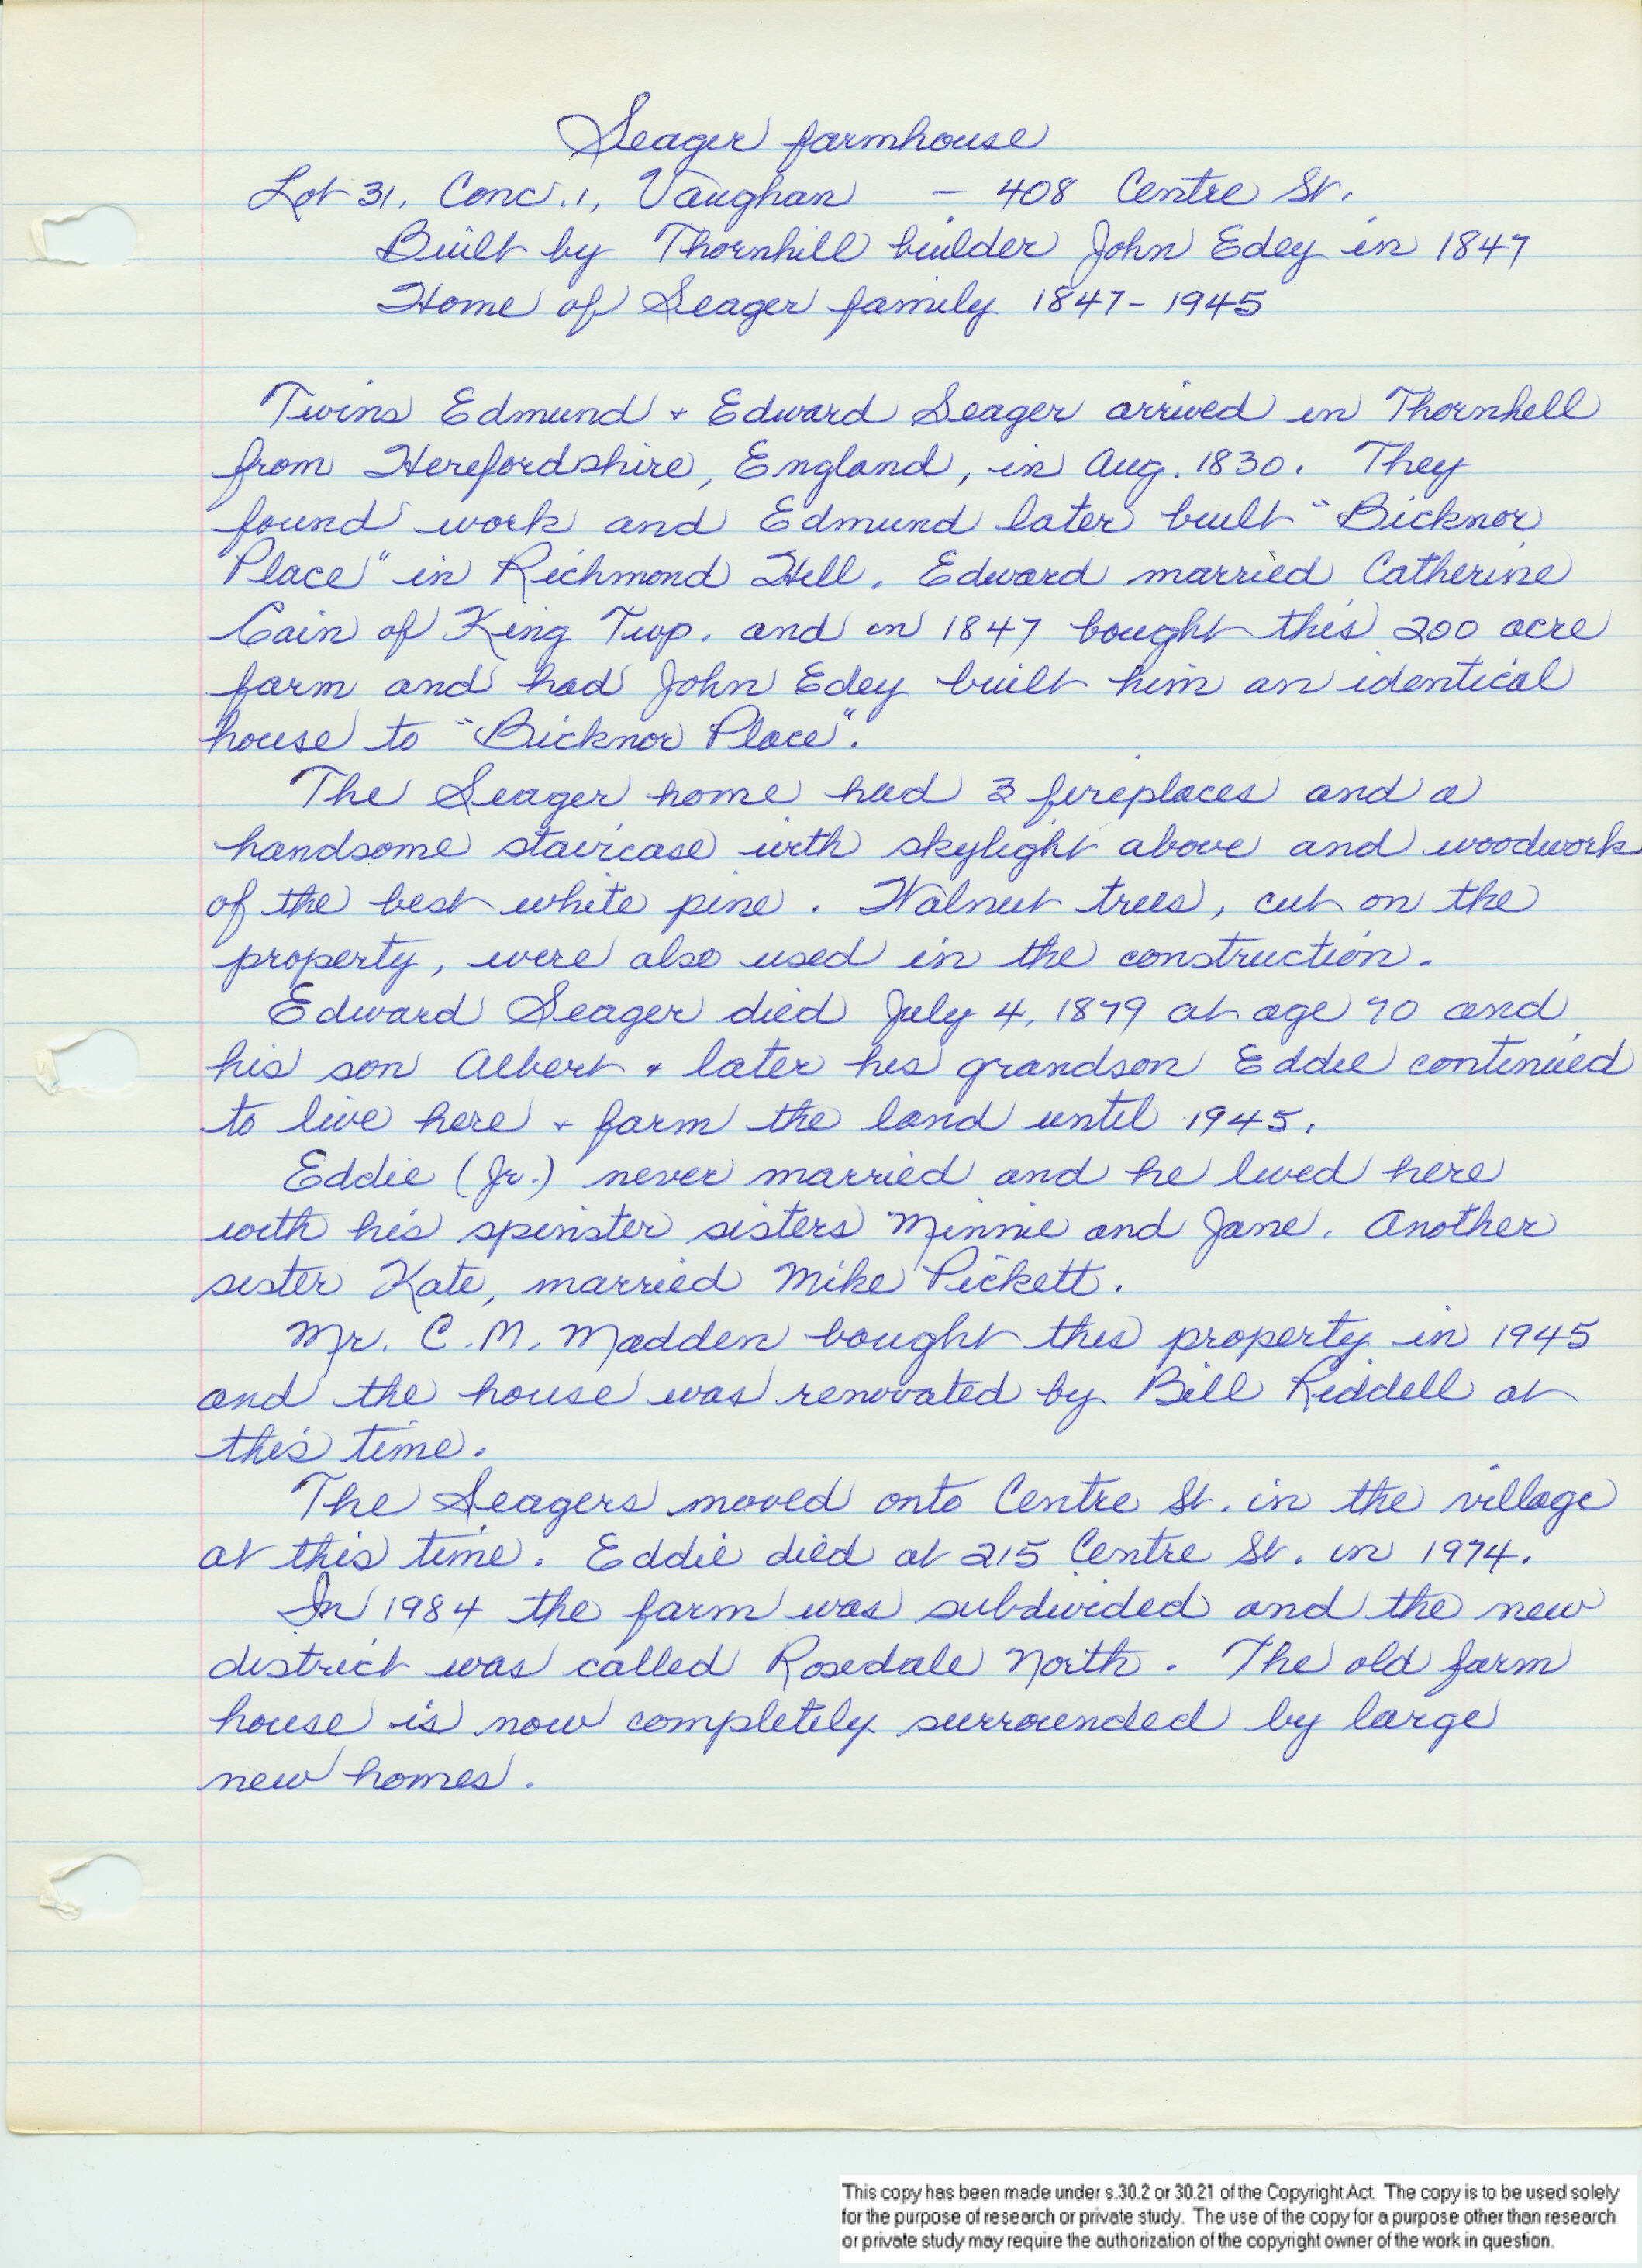 Seager farmhouse
Lot 31, Conc. 1, Vaughan – 408 Centre St.
Built by Thornhill builder John Edey in 1847
Home of Seager family 1847-1945
Twins Edmund + Edward Seager arrived in Thornhill
from Herefordshire, England, in Aug. 1830. They
found work and Edmund later built "Bicknor
Place" in Richmond Hill. Edward married Catherine
Cain of King Twp. and in 1847 bought this 200 acre
farm and had John Edey built him an identical
house to "Bicknor Place".
The Seager home had 3 fireplaces and a
handsome staircase with skylight above and woodwork
of the best white pine. Walnut trees, cut on the
property, were also used in the construction.
Edward Seager died July 4, 1879 at age 70 and
his son Albert + later his grandson Eddie continued
to live here + farm the land until 1945.
Eddie (Jr.) never married and he lived here
with his spinster sisters Minnie and Jane. Another
sister Kate, married Mike Pickett.
Mr. C.M. Madden bought this property in 1945
and the house was renovated by Bill Riddell at
this time.
The Seagers moved onto Centre St. in the village
at this time. Eddie died at 215 Centre St. in 1974.
In 1984 the farm was subdivided and the new
district was called Rosedale North. The old farm
house is now completely surrounded by large
new homes.
This copy has been made under s.30.2 or 30.21 of the Copyright Act. The copy is to be used solely
for the purpose of research or private study. The use of the copy for a purpose other than research
or private study may require the authorization of the copyright owner of the work in question.